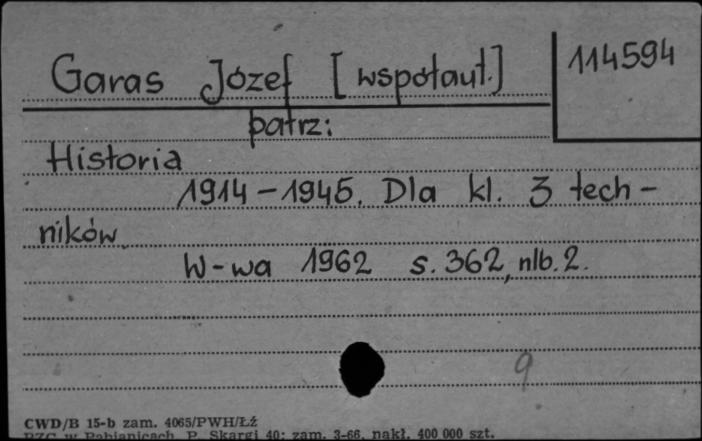 Garas Józef [współaut.] 114594
patrz:
Historia
1914-1945. Dla kl. 3 tech-
ników.
W-wa 1962 s. 362, nlb. 2.
9
CWD/B 15-b zam. 4065/PWH/ŁŹ
PZG w Pabianicach, P. Skargi 40; zam. 3-66, nakł. 400 000 szt.